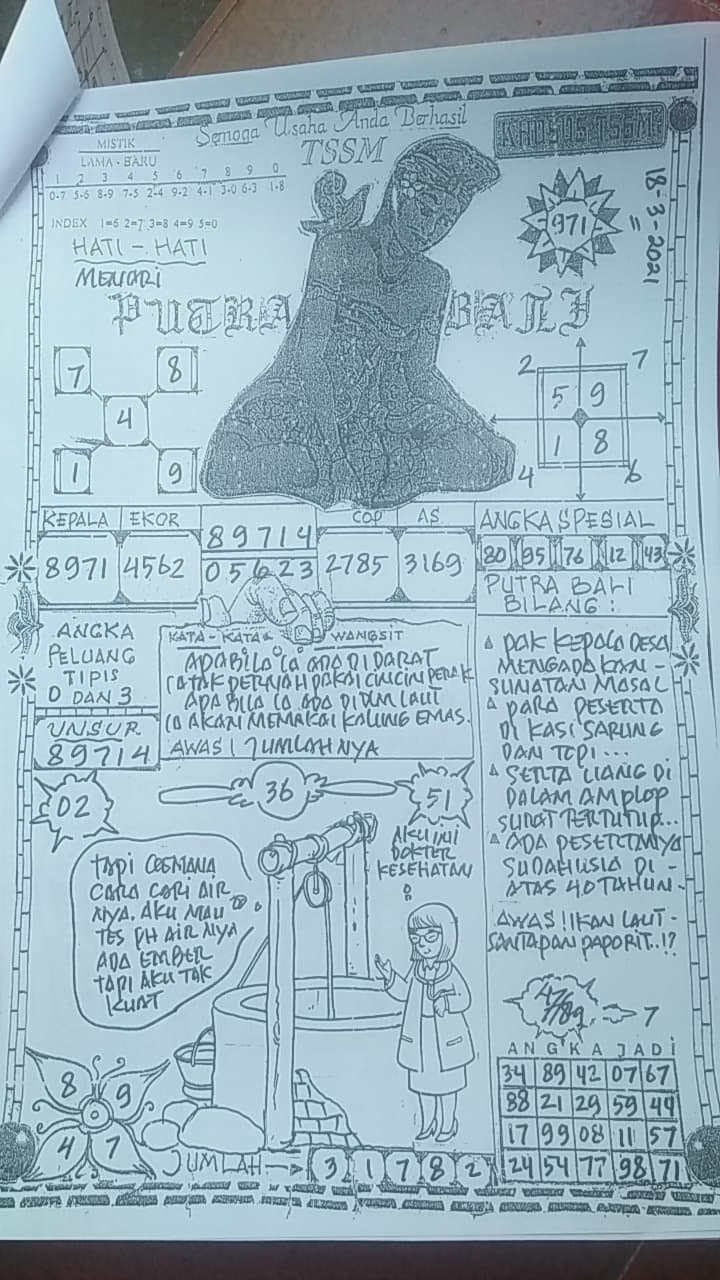 Semoga Usaha Anda Berhasil
TSSM
KHUSUS TSSM
MISTIK
LAMA - BARU
1 2 3 4 5 6 7 8 9 0
0-7 5-6 8-9 7-5 2-4 9-2 4-1 3-0 6-3 1-8
INDEX 1=6 2=7 3=8 4=9 5=0
HATI - HATI
MENARI
971
18-3-2021
PUTRA BALI
7 8
4
1 9
2 7
5 9
1 8
4 6
KEPALA EKOR
8971 4562
89714
05623
COP AS
2785 3169
ANGKA SPESIAL
80 95 76 12 43
ANGKA
PELUANG
TIPIS
0 DAN 3
UNSUR
89714
KATA - KATA WANGSIT
APABILA IA ADA DI DARAT
IA TAK PERNAH PAKAI CINCIN PERAK
APA BILA IA ADA DI DLM LAUT
IA AKAN MEMAKAI KALUNG EMAS.
AWAS! JUMLAH NYA
PUTRA BALI
BILANG :
PAK KEPALA DESA
MENGADAKAN -
SUNATAN MASAL
PARA PESERTA
DI KASI SARUNG
DAN TOPI ...
SERTA UANG DI
DALAM AMPLOP
SURAT TERTUTUP...
ADA PESERTANYA
SUDAH USIA DI -
ATAS 40 TAHUN -
AWAS !! IKAN LAUT -
SANTAPAN PAPORIT..!?
02
36
51
AKU INI
DOKTER
KESEHATAN
TAPI GEMANA
CARA CARI AIR
NYA. AKU MAU
TES PH AIR NYA
ADA EMBER
TAPI AKU TAK
KUAT
7
ANGKA JADI
34 89 42 07 67
88 21 29 59 49
17 99 08 11 57
24 54 77 98 71
8 9
4 7
JUMLAH 3 1 7 8 2